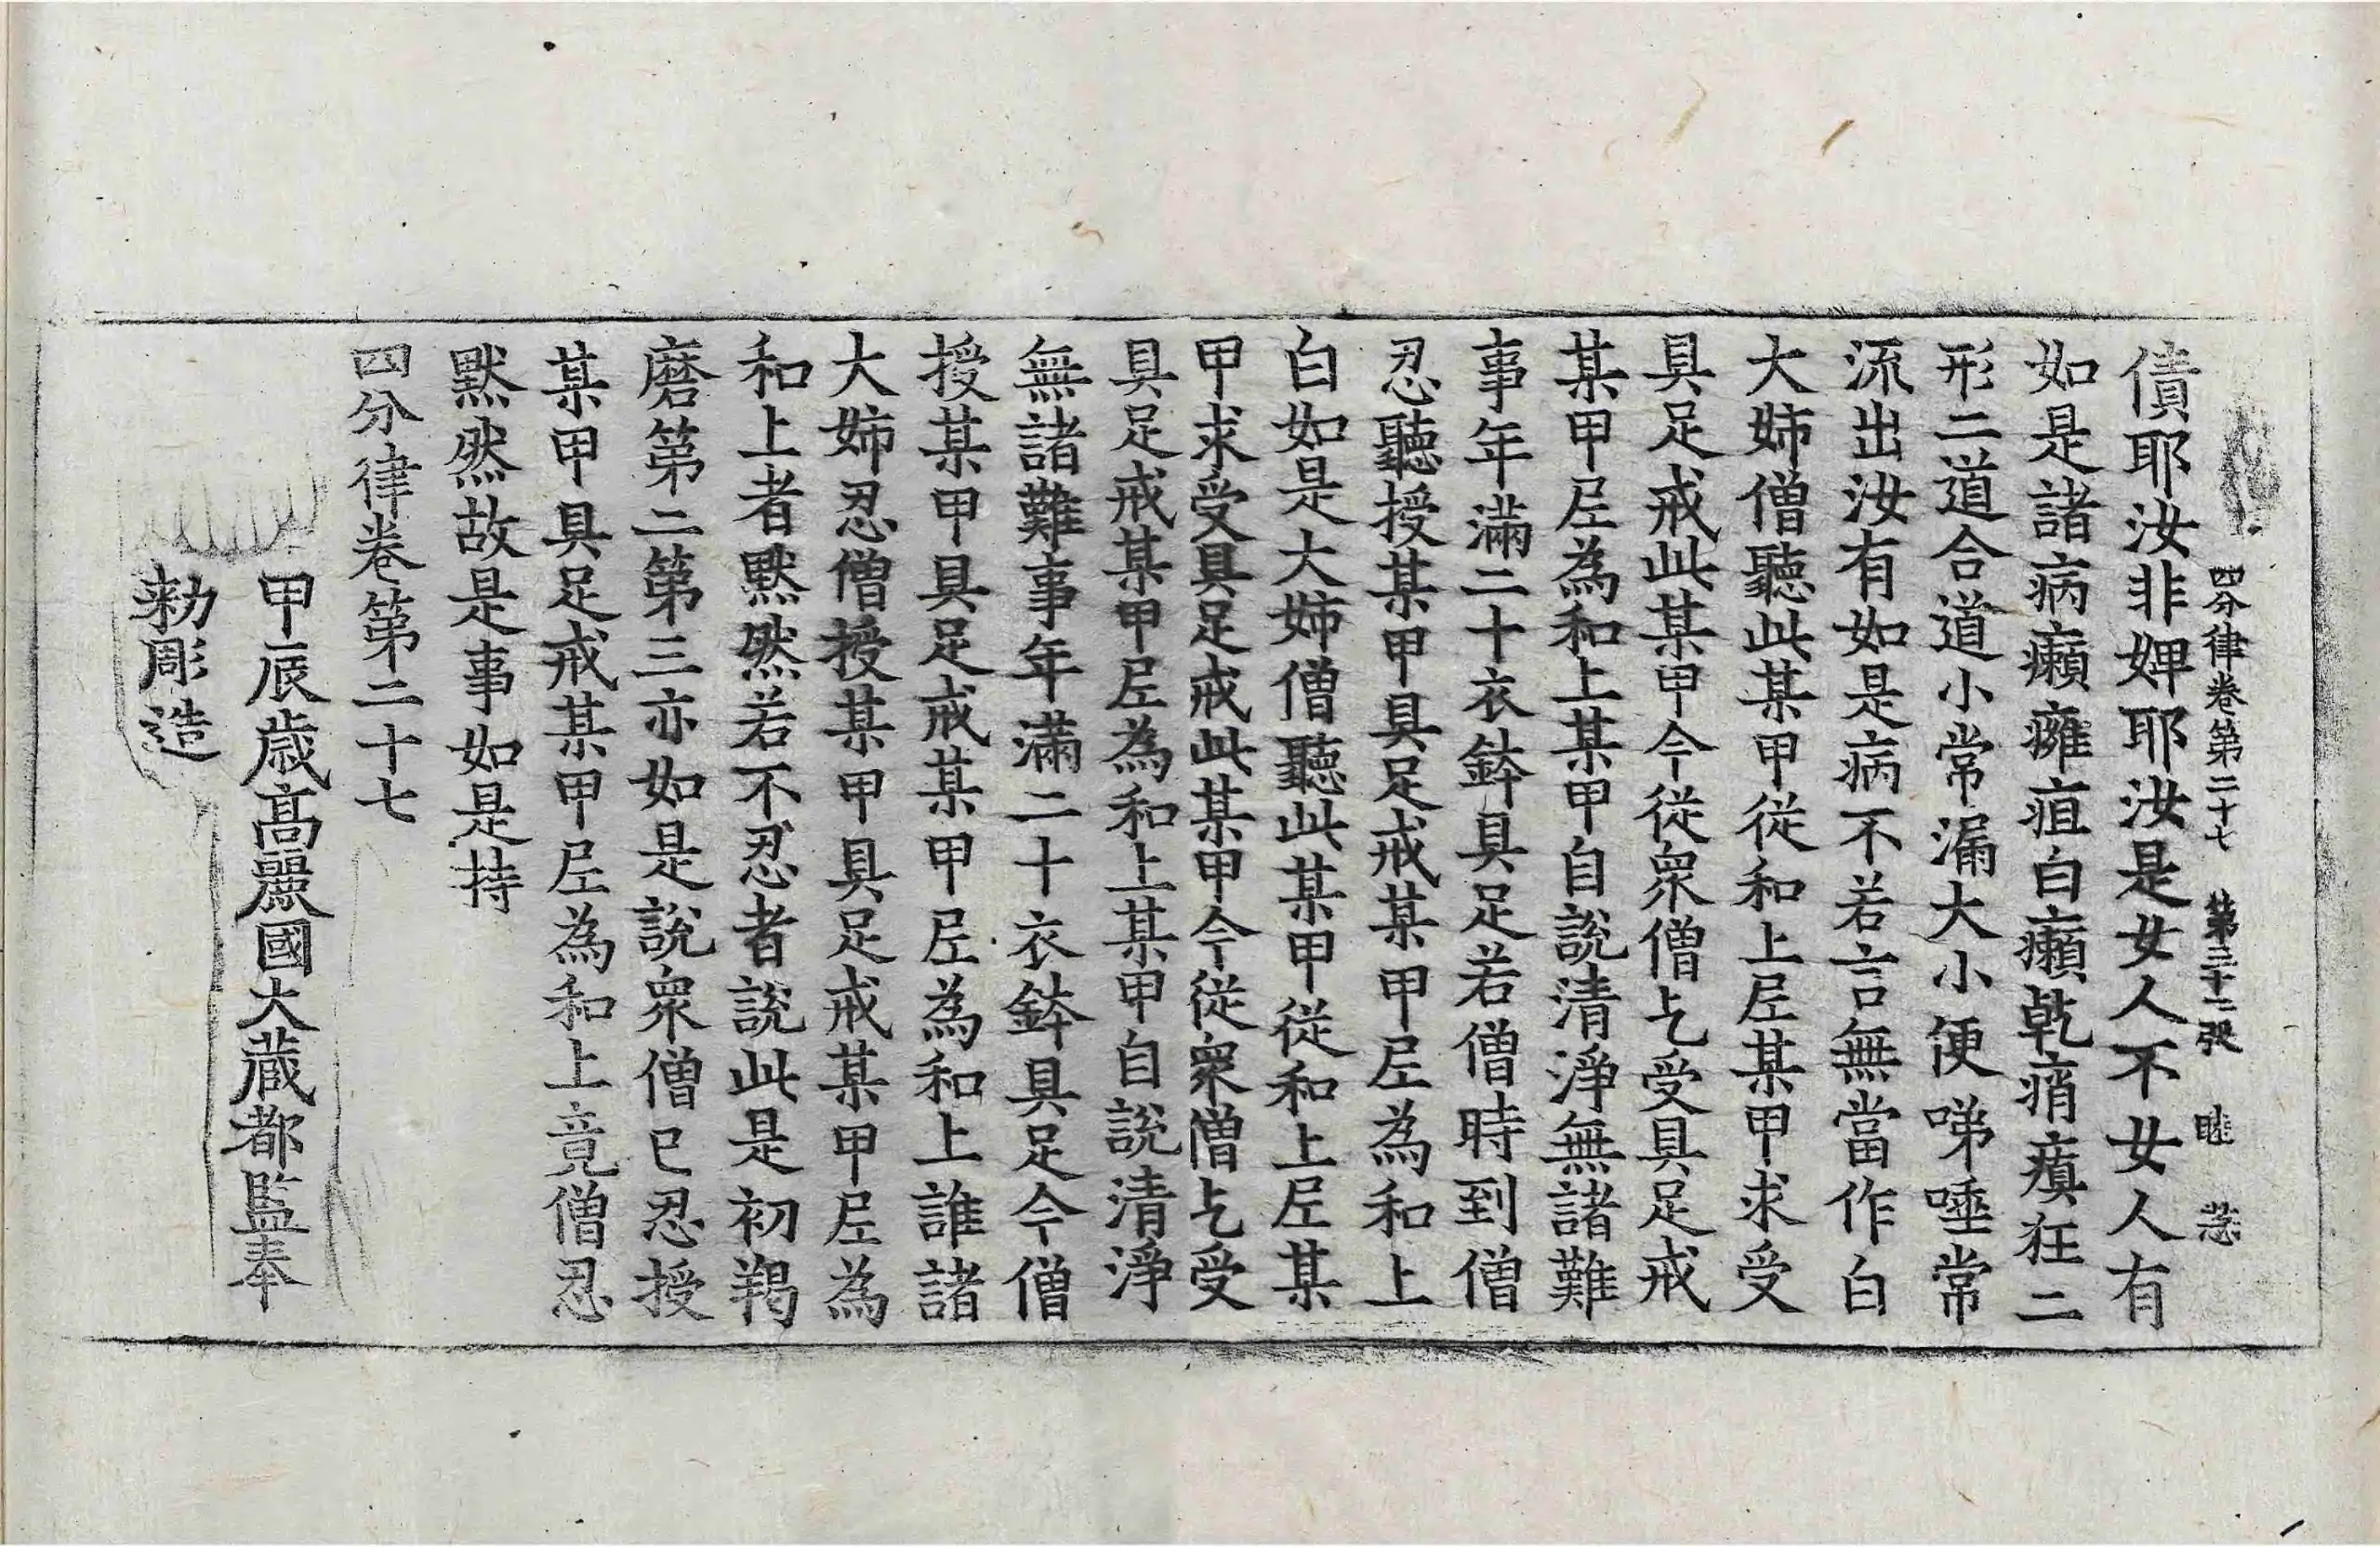 四分律卷第二十七　第三十二張　睢　㳟
債耶汝非婢耶汝是女人不女人有
如是諸病癩癰疽白癩乾痟瘨狂二
形二道合道小常漏大小便涕唾常
流出汝有如是病不若言無當作白
大姉僧聽此某甲從和上𡰱某甲求受
具足戒此某甲今從衆僧乞受具足戒
某甲𡰱為和上某甲自說清淨無諸難
事年滿二十衣鉢具足若僧時到僧
忍聽授某甲具足戒某甲𡰱為和上
白如是大姉僧聽此某甲從和上𡰱某
甲求受具足戒此某甲今從衆僧乞受
具足戒某甲𡰱為和上某甲自說清淨
無諸難事年滿二十衣鉢具足今僧
授某甲具足戒某甲𡰱為和上誰諸
大姉忍僧授某甲具足戒某甲𡰱為
和上者默然若不忍者說此是初羯
磨第二第三亦如是說衆僧已忍授
某甲具足戒某甲𡰱為和上竟僧忍
默然故是事如是持
四分律卷第二十七
甲辰歳髙麗國大蔵都監奉
勑彫造